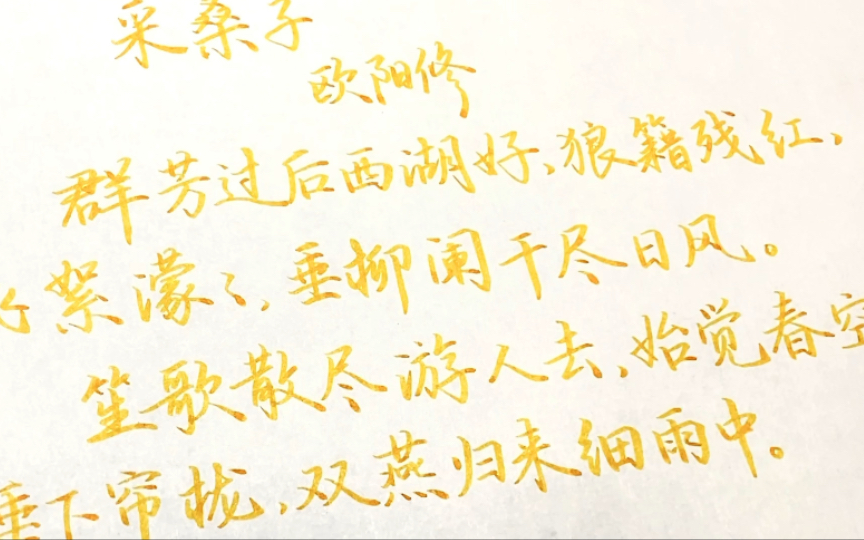 采桑子
欧阳修
群芳过后西湖好、狼籍残红、
飞絮濛々、垂柳阑干尽日风。
笙歌散尽游人去、始觉春空
垂下帘栊、双燕归来细雨中。